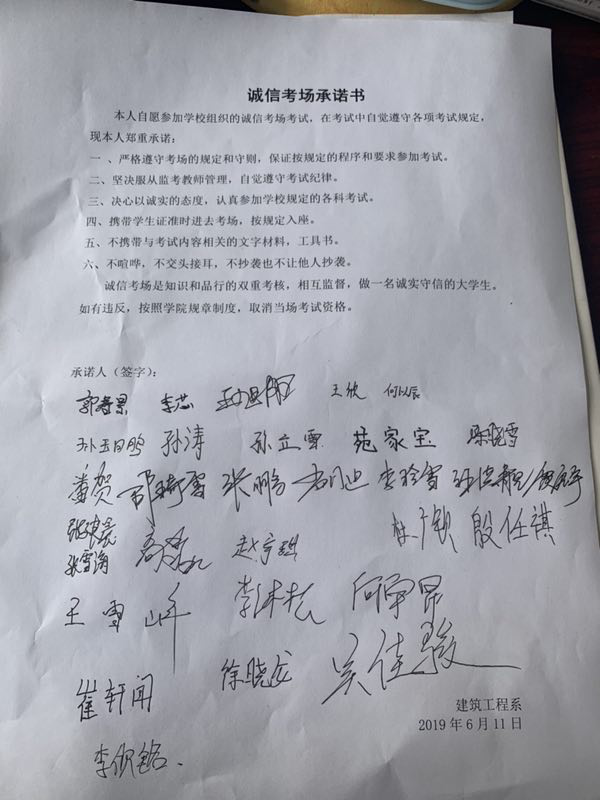 诚信考场承诺书
本人自愿参加学校组织的诚信考场考试，在考试中自觉遵守各项考试规定，
现本人郑重承诺：
一 、严格遵守考场的规定和守则，保证按规定的程序和要求参加考试。
二、坚决服从监考教师管理，自觉遵守考试纪律。
三、决心以诚实的态度，认真参加学校规定的各科考试。
四、携带学生证准时进去考场，按规定入座。
五、不携带与考试内容相关的文字材料，工具书。
六、不喧哗，不交头接耳，不抄袭也不让他人抄袭。
诚信考场是知识和品行的双重考核，相互监督，做一名诚实守信的大学生。
如有违反，按照学院规章制度，取消当场考试资格。
承诺人（签字）：
李芯 王欣 何以辰
孙玉鹏 孙涛 孙立雪 苑家宝 陈晓雪
张鹏 李玲雪
张雪海 殷任祺
王雪峰
崔轩闻 徐晓龙 吴佳骏
建筑工程系
2019 年 6 月 11 日